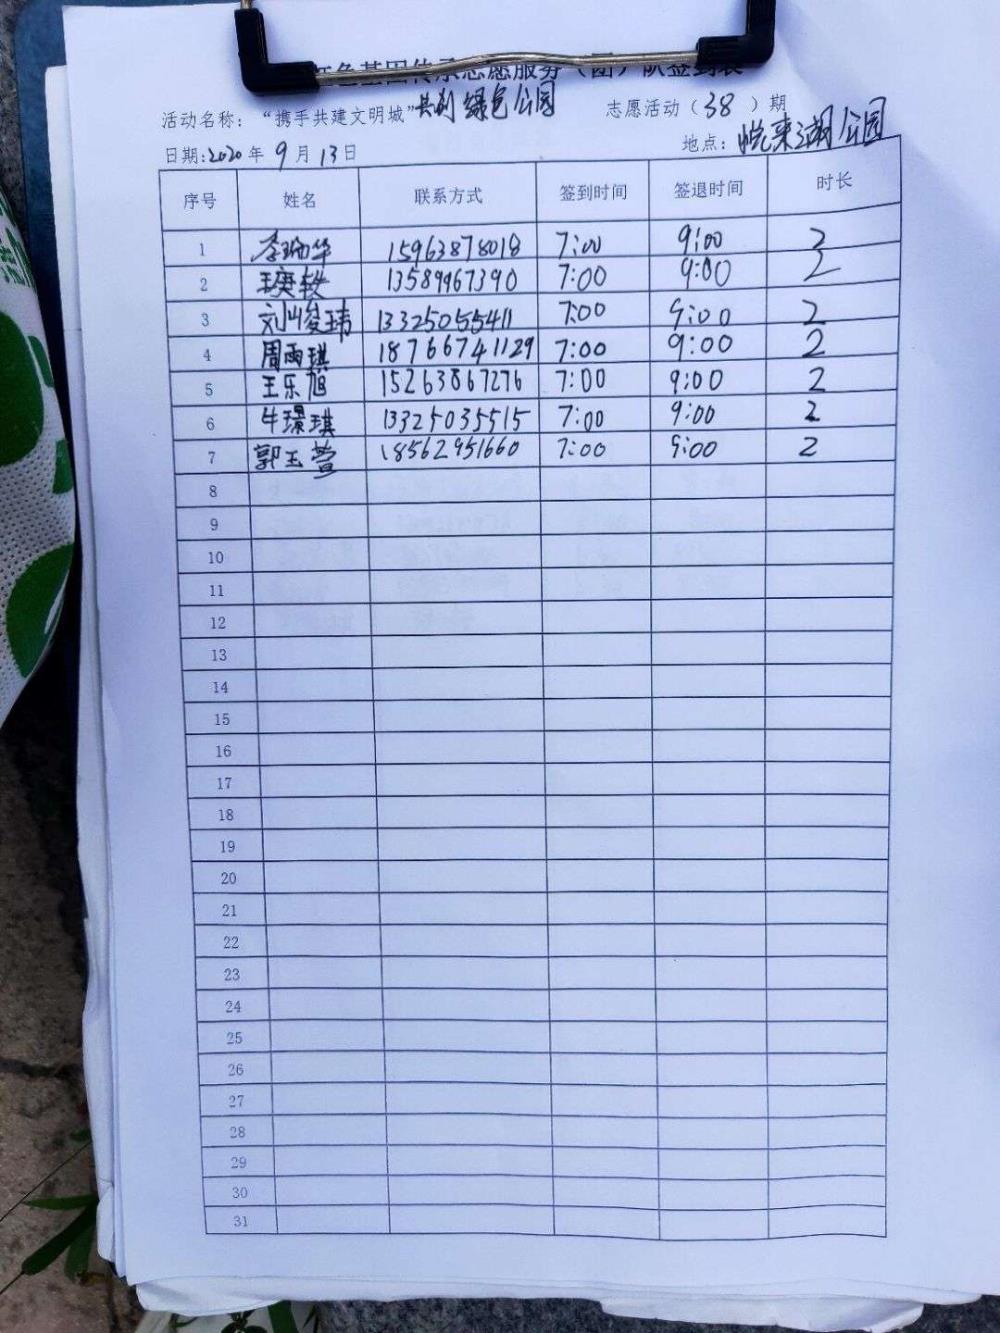 红色基因传承志愿服务（团）队签到表
活动名称：“携手共建文明城”共创绿色公园 志愿活动（38）期
日期:2020年9月13日 地点：悦来湖公园
序号 姓名 联系方式 签到时间 签退时间 时长
1 李瑞华 15963878018 7:00 9:00 2
2 13589967390 7:00 9:00 2
3 刘峻玮 13325055411 7:00 9:00 2
4 周雨琪 18766741129 7:00 9:00 2
5 王乐旭 15263867276 7:00 9:00 2
6 牛璟琪 13325035515 7:00 9:00 2
7 郭玉萱 18562951660 7:00 9:00 2
8
9
10
11
12
13
14
15
16
17
18
19
20
21
22
23
24
25
26
27
28
29
30
31